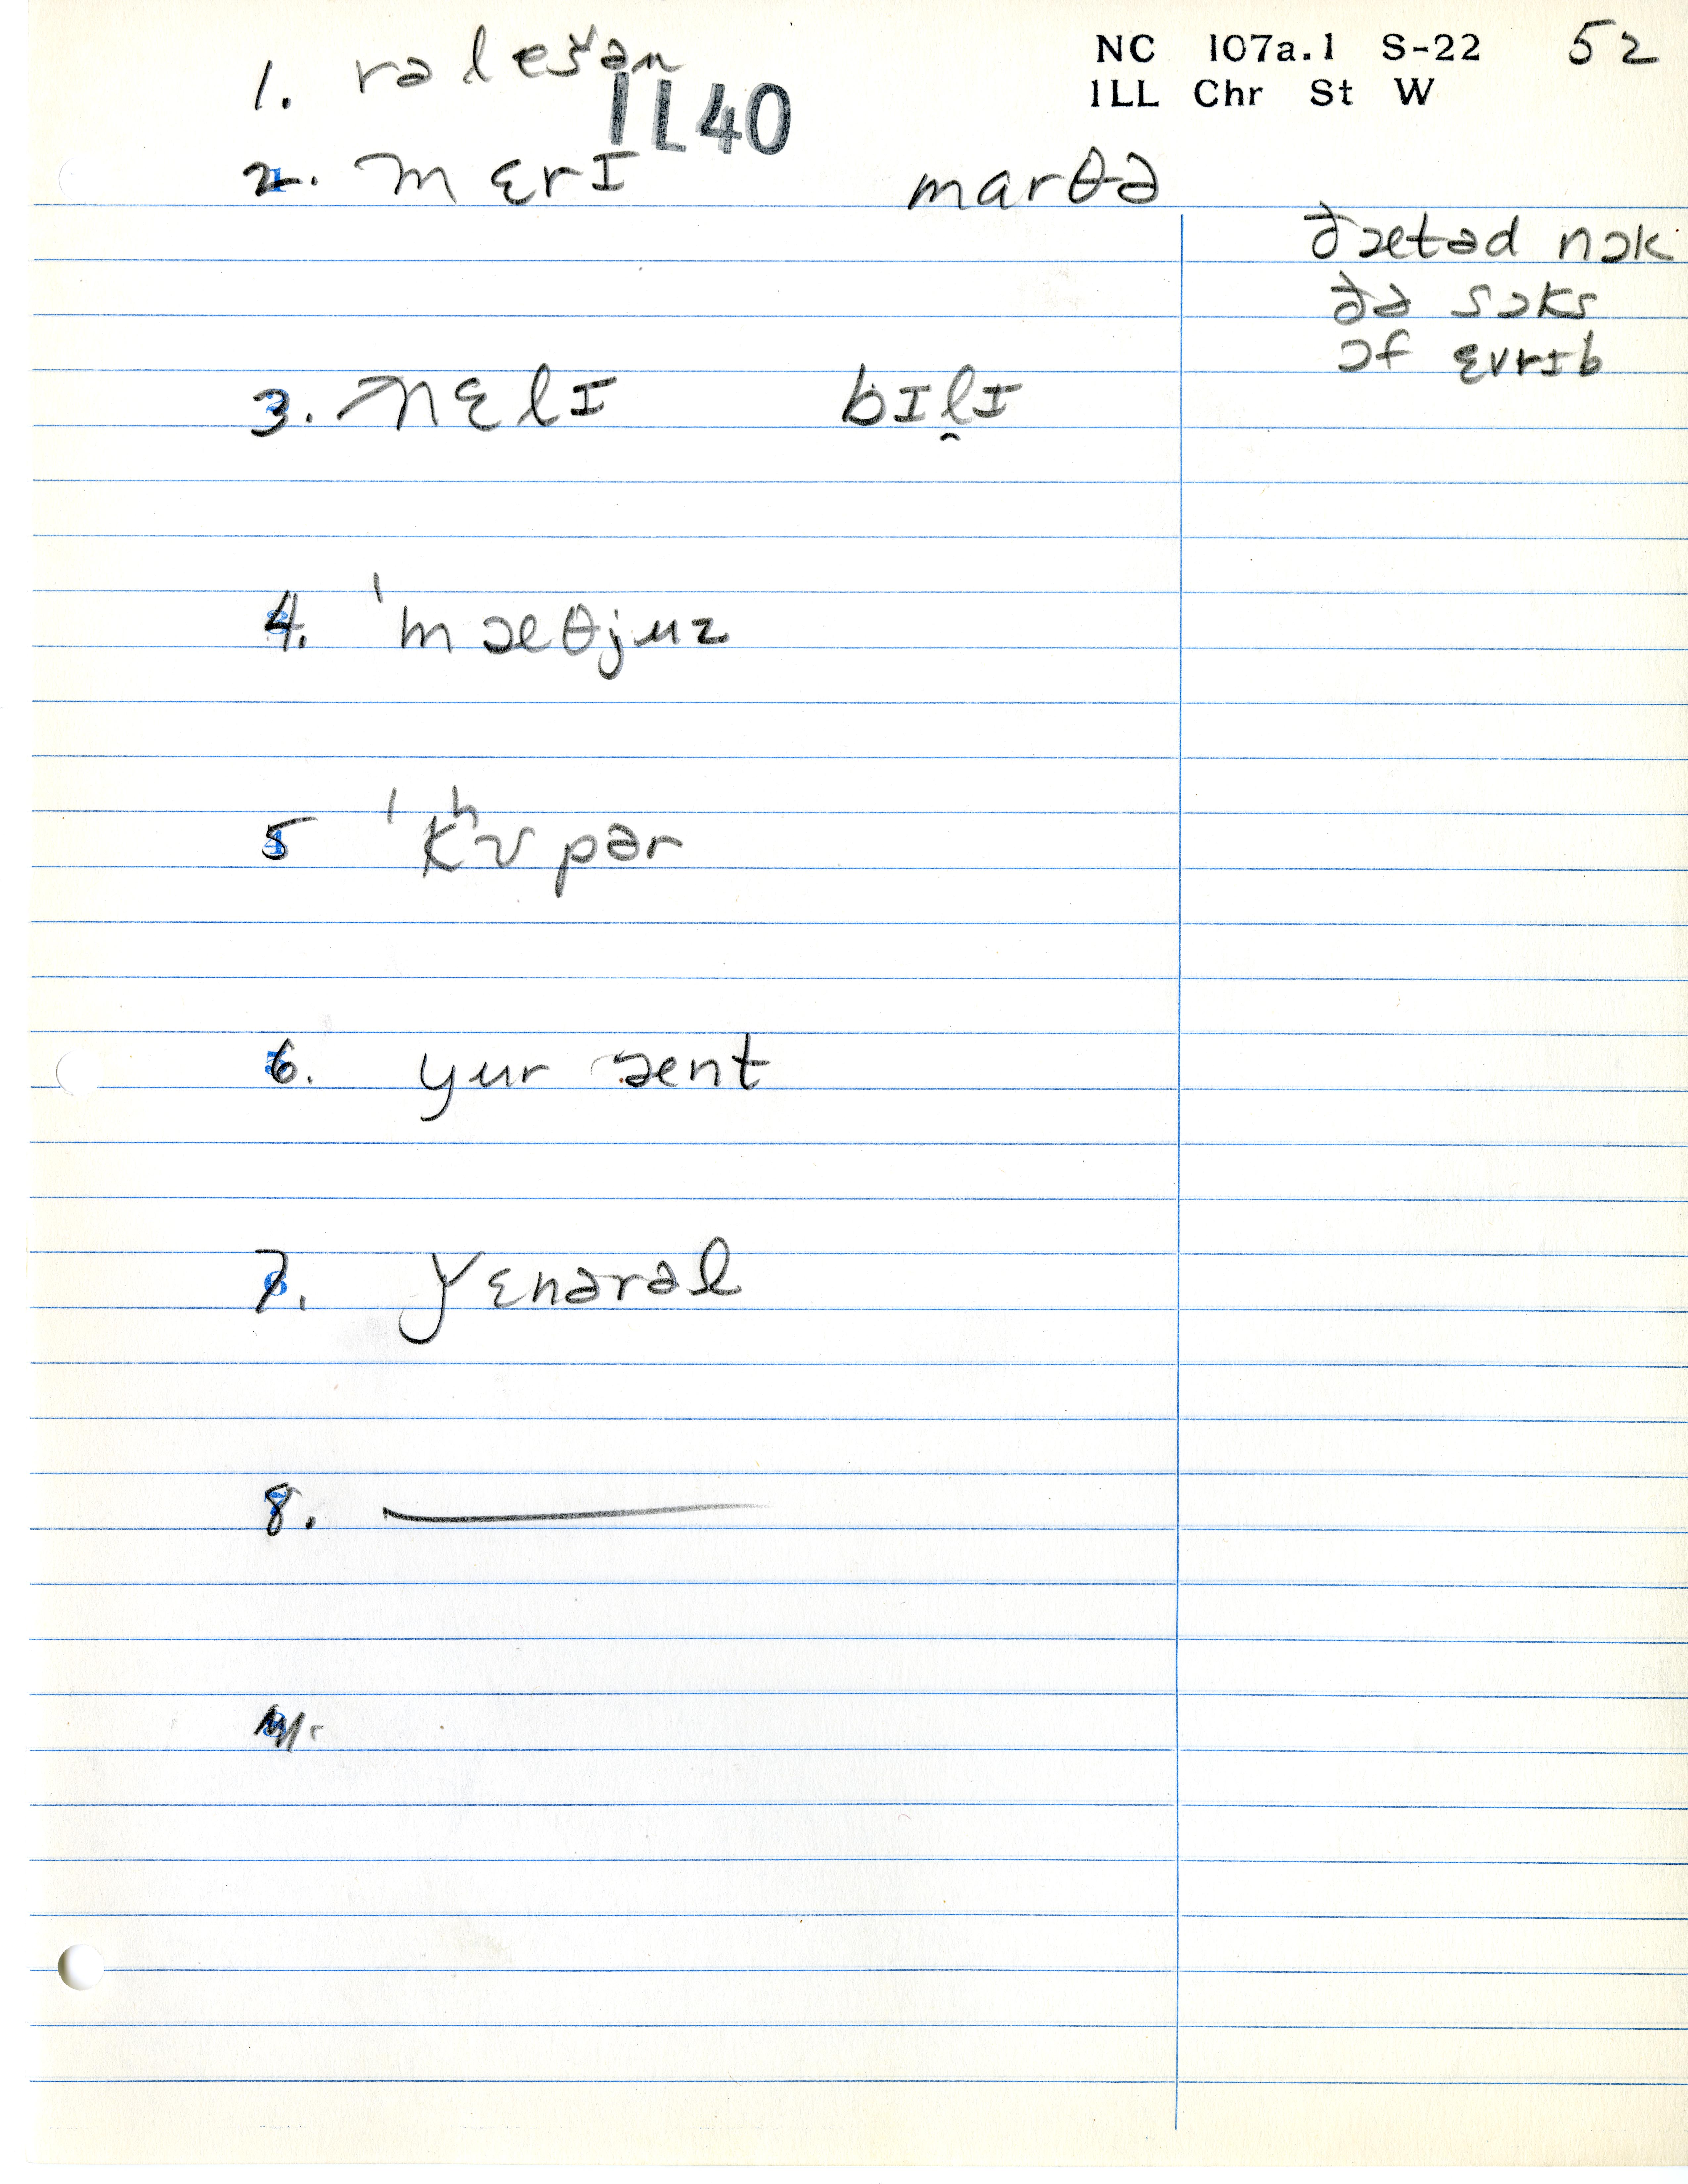 NC 107a.1 S-22 52
ILL Chr St W
1. rəlešən
IL40
2. mɛrɪ marθə
ðætəd nɔk
ðə sɔks
ɔf ɛvrɪb
3. nɛlɪ bɪl̯ɪ
4. ˈmæθjuz
5 ˈkʰʊpər
6. yur ænt
7. ǰɛnərəl
8. ———